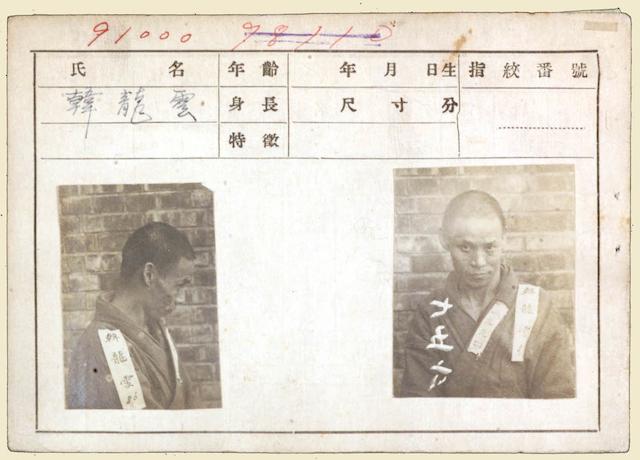 91000 78110
氏名 年齡 年月日生 指紋番號
韓龍雲 身長 尺寸分
特徵
韓龍雲
韓龍雲